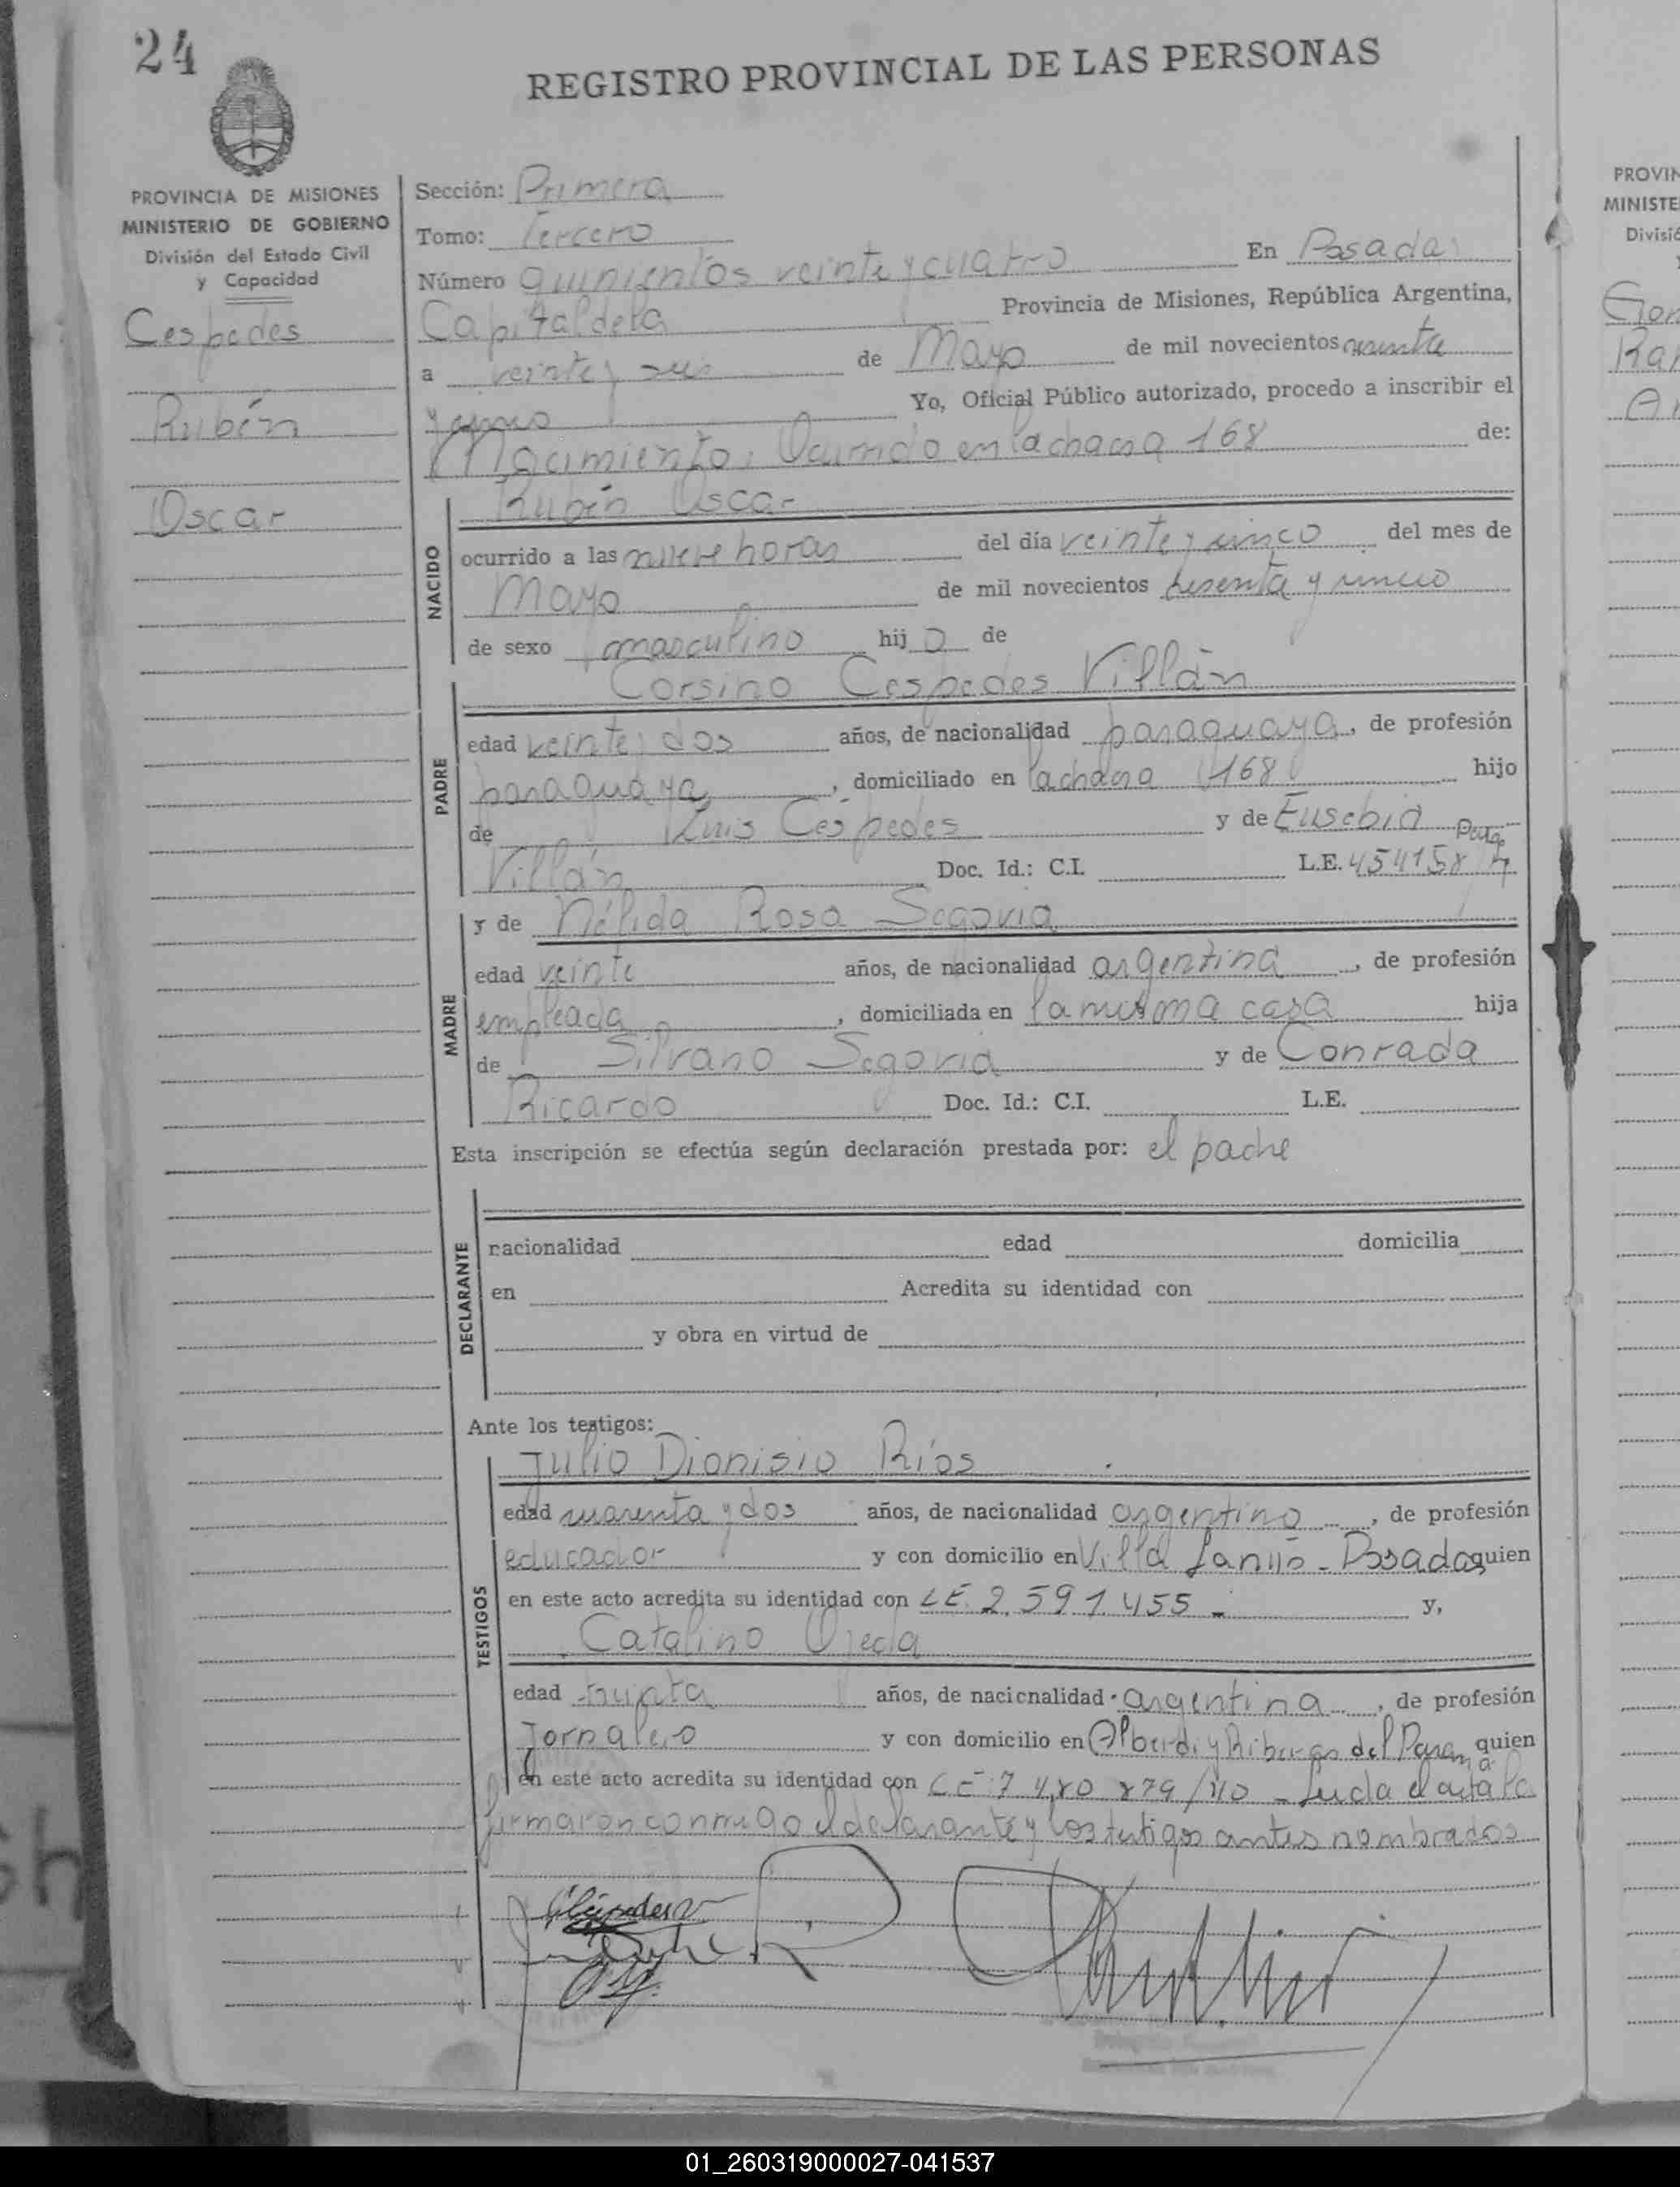 24
REGISTRO PROVINCIAL DE LAS PERSONAS
PROVINCIA DE MISIONES
MINISTERIO DE GOBIERNO
División del Estado Civil
y Capacidad
Cespedes
Rubén
Oscar
Sección: Primera
Tomo: Tercero
Número quinientos veinte y cuatro En Posadas
Capital de la Provincia de Misiones, República Argentina,
a veinte y seis de Mayo de mil novecientos sesenta
y cinco Yo, Oficial Público autorizado, procedo a inscribir el
Nacimiento, Ocurrido en la chacra 168 de:
NACIDO
Rubén Oscar
ocurrido a las nueve horas del día veinte y cinco del mes de
Mayo de mil novecientos sesenta y cinco
de sexo masculino hijo de
PADRE
Corsino Cespedes Villán
edad veinte y dos años, de nacionalidad paraguaya, de profesión
paraguaya, domiciliado en la chacra 168 hijo
de Luis Céspedes y de Eusebia
Villán Doc. Id.: C.I. L.E. 454158
MADRE
y de Nélida Rosa Segovia
edad veinte años, de nacionalidad argentina, de profesión
empleada, domiciliada en la misma casa hija
de Silvano Segovia y de Conrada
Ricardo Doc. Id.: C.I. L.E.
Esta inscripción se efectúa según declaración prestada por: el padre
DECLARANTE
nacionalidad edad domicilia
en Acredita su identidad con
y obra en virtud de
Ante los testigos:
TESTIGOS
Julio Dionisio Ríos
edad cuarenta y dos años, de nacionalidad argentino, de profesión
educador y con domicilio en Villa Lanús - Posadas quien
en este acto acredita su identidad con LE. 2.591.455 - y,
Catalino Ojeda
edad treinta años, de nacionalidad argentina, de profesión
Jornalero y con domicilio en Alberdi y Riberas del Paraná quien
en este acto acredita su identidad con - Leida el acta la
firmaron conmigo el declarante y los testigos antes nombrados
PROVIN
MINISTE
Divisió
01_260319000027-041537